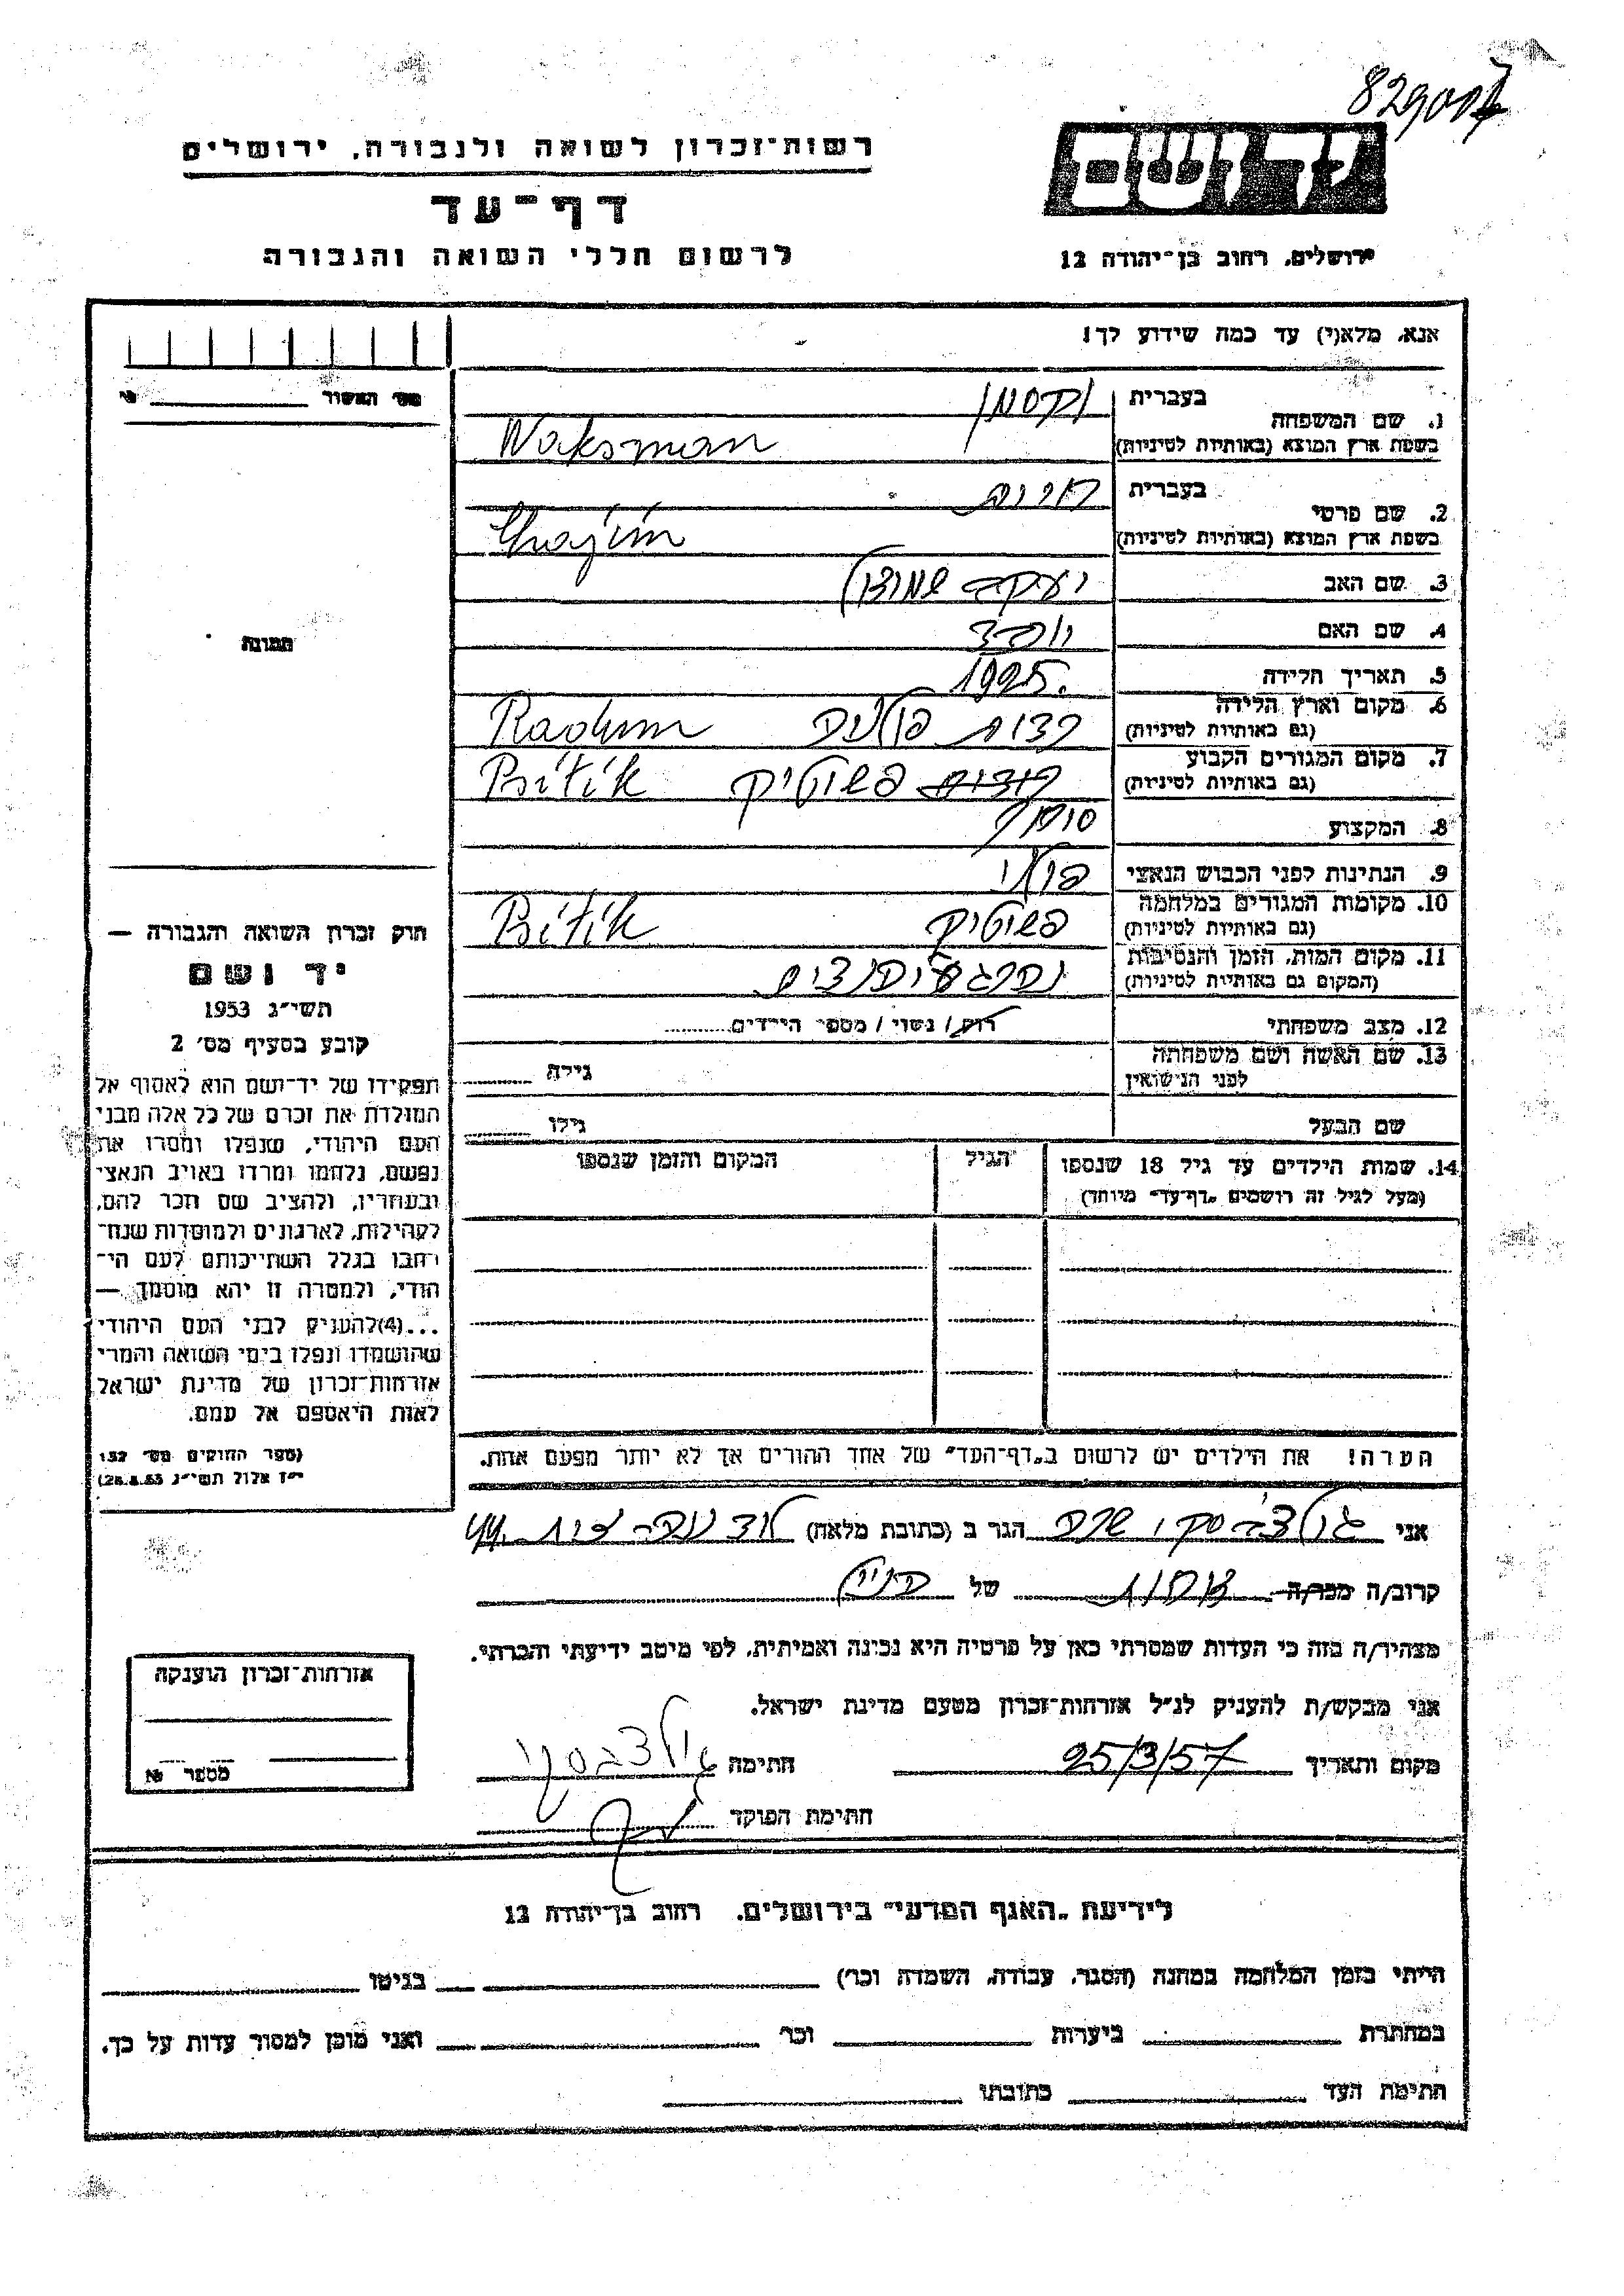 829007
רשות־זכרון לשואה ולגבורה, ירושלים
יד ושם
דף־עד
לרשום חללי השואה והגבורה
ירושלים, רחוב בן־יהודה 12
אנא, מלא(י) עד כמה שידוע לך!
מס׳ האשור
1. שם המשפחה
בעברית וקסמן
בשפת ארץ המוצא (באותיות לטיניות) Waksman
2. שם פרטי
בעברית חיים
בשפת ארץ המוצא (באותיות לטיניות) Chajim
3. שם האב יעקב
4. שם האם
5. תאריך הלידה 1925.
6. מקום וארץ הלידה
(גם באותיות לטיניות) רדום Radum
7. מקום המגורים הקבוע
(גם באותיות לטיניות) פשיטיק Psitik
8. המקצוע סוחר
9. הנתינות לפני הכבוש הנאצי פולני
10. מקומות המגורים במלחמה
(גם באותיות לטיניות) פשיטיק Psitik
11. מקום המות, הזמן והנסיבות
(המקום גם באותיות לטיניות)
12. מצב משפחתי רוק / נשוי / מספר הילדים
13. שם האשה ושם משפחתה
לפני הנישואין גילה
שם הבעל גילו
14. שמות הילדים עד גיל 18 שנספו הגיל המקום והזמן שנספו
(מעל לגיל זה רושמים „דף־עד״ מיוחד)
הערה! את הילדים יש לרשום ב„דף־העד״ של אחד ההורים אך לא יותר מפעם אחת.
תמונה
חוק זכרון השואה והגבורה —
יד ושם
תשי״ג 1953
קובע בסעיף מס׳ 2
תפקידו של יד־ושם הוא לאסוף אל
המולדת את זכרם של כל אלה מבני
העם היהודי, שנפלו ומסרו את
נפשם, נלחמו ומרדו באויב הנאצי
ובעוזריו, ולהציב שם וזכר להם,
לקהילות, לארגונים ולמוסדות שנח־
רבו בגלל השתייכותם לעם הי־
הודי, ולמטרה זו יהא מוסמך —
...(4)להעניק לבני העם היהודי
שהושמדו ונפלו בימי השואה והמרי
אזרחות־זכרון של מדינת ישראל
לאות היאספם אל עמם.
(ספר החוקים מס׳ 132
י״ז אלול תשי״ג 28.8.53)
אני הגר ב (כתובת מלאה) 44
קרוב/ה מכר/ה של
מצהיר/ה בזה כי העדות שמסרתי כאן על פרטיה היא נכונה ואמיתית, לפי מיטב ידיעתי והכרתי.
אני מבקש/ת להעניק לנ״ל אזרחות־זכרון מטעם מדינת ישראל.
מקום ותאריך 25/3/57 חתימה
חתימת הפוקד
אזרחות־זכרון הוענקה
מספר №
לידיעת „האגף המדעי״ בירושלים, רחוב בן־יהודה 12
הייתי בזמן המלחמה במחנה (הסגר, עבודה, השמדה וכו׳) בגיטו
במחתרת ביערות וכו׳ ואני מוכן למסור עדות על כך.
חתימת העד כתובתו